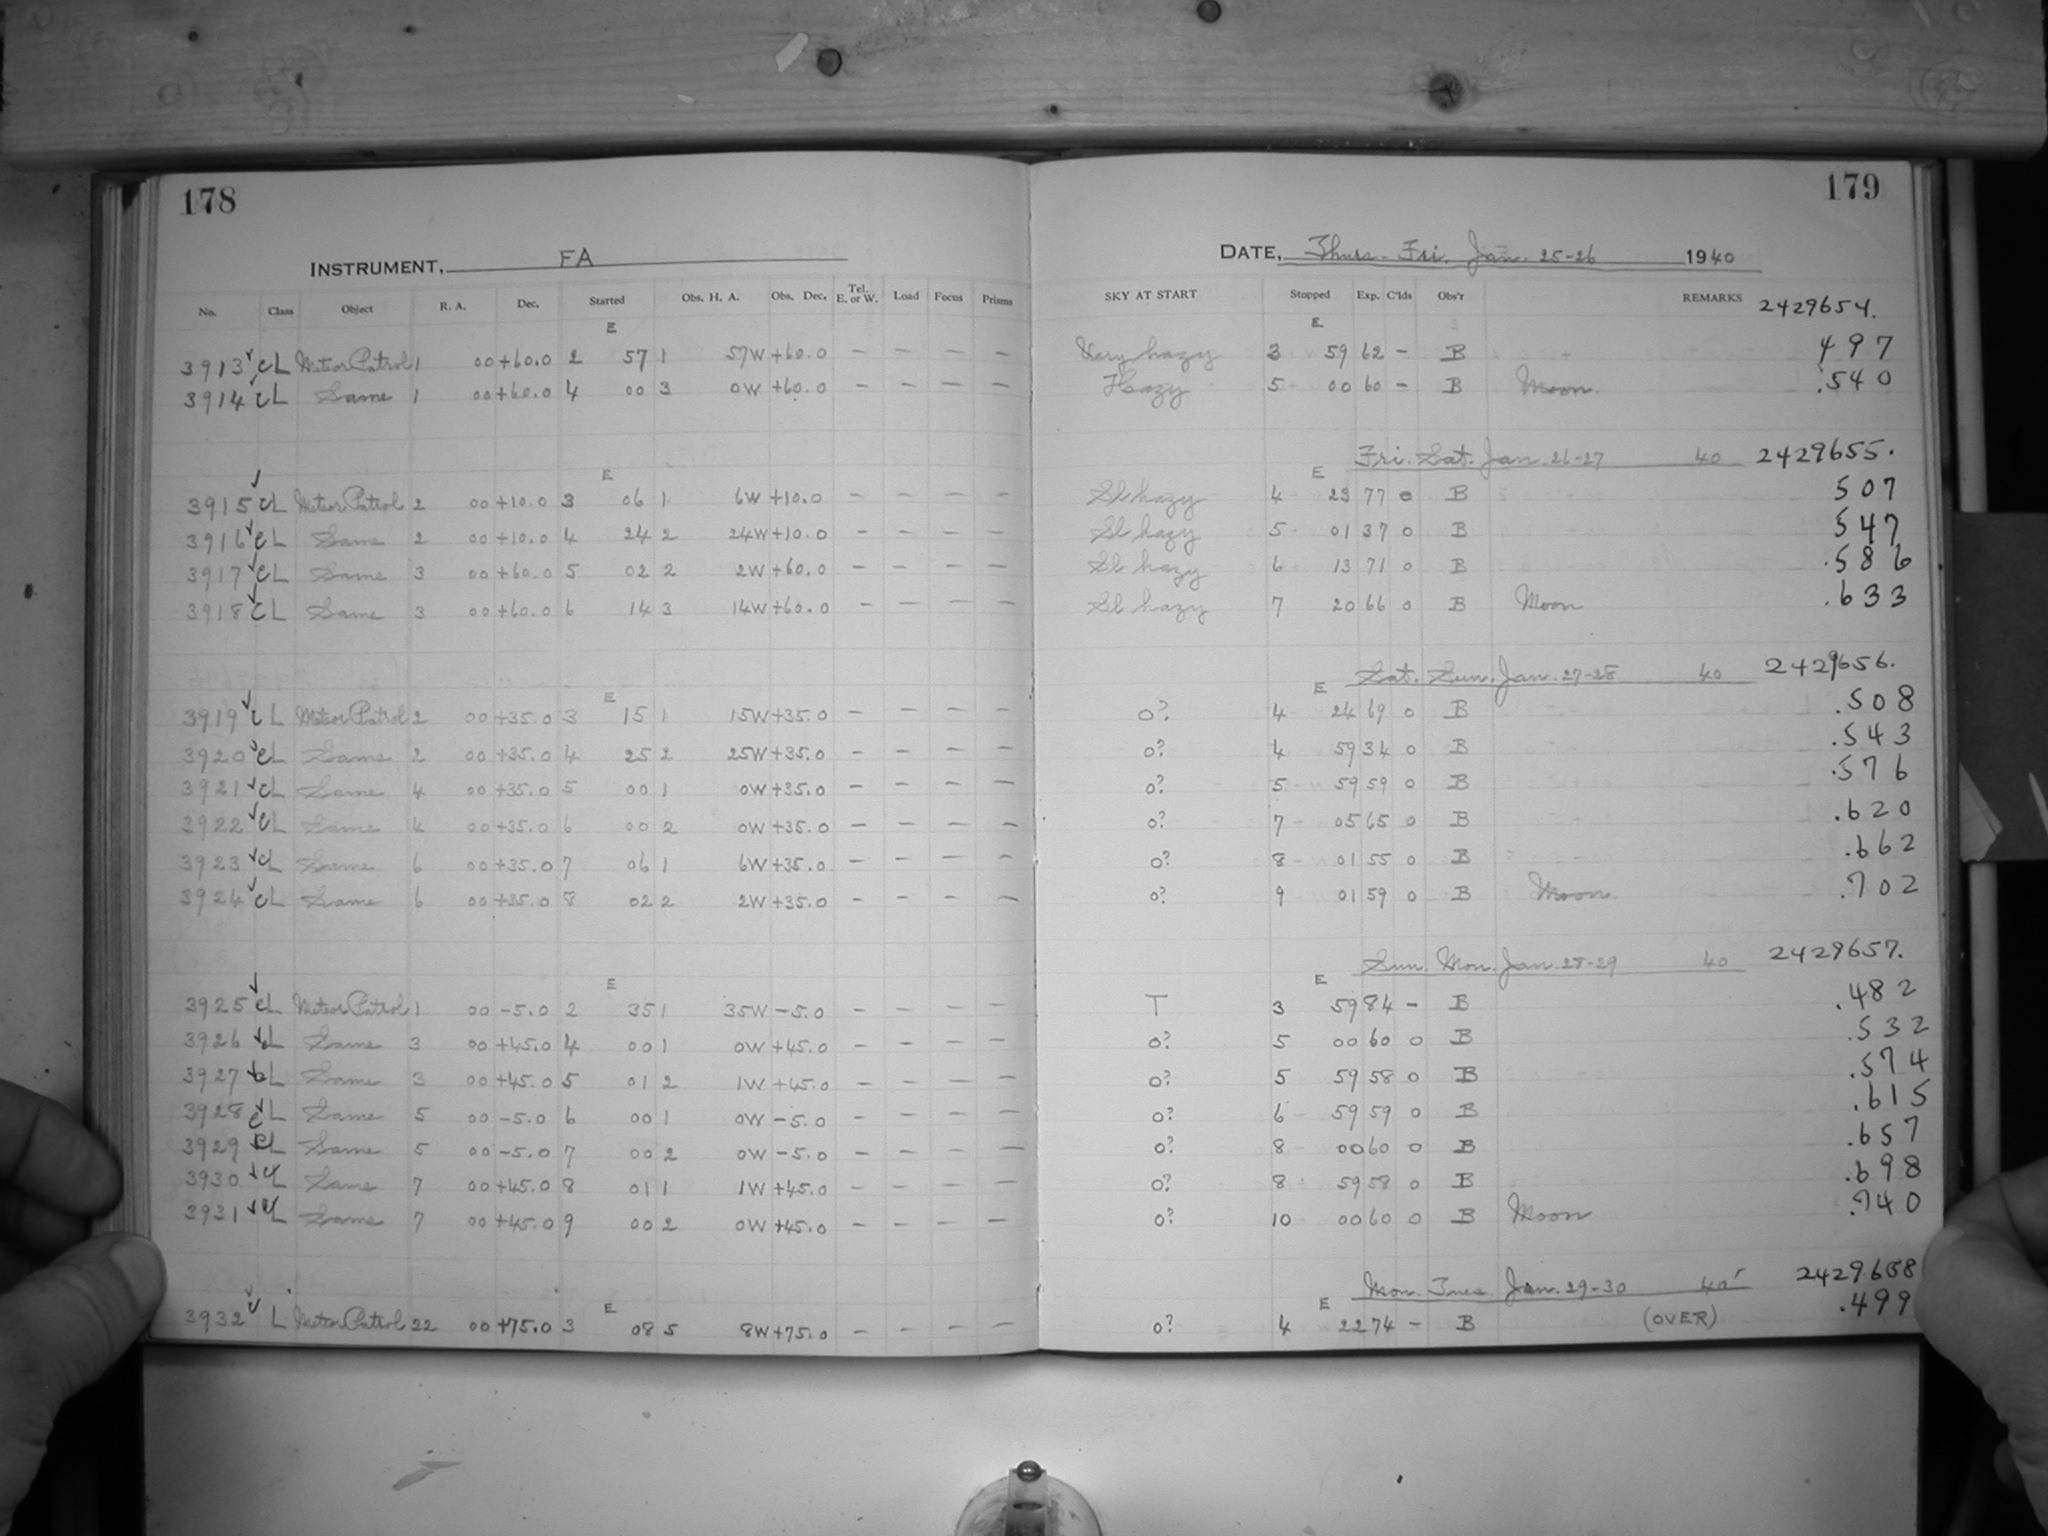 178
INSTRUMENT, FA
No. Class Object R. A. Dec. Started Obs. H. A. Obs. Dec. Tel. E. or W. Load Focus Prisms
E
3913 ✓ CL Meteor Patrol 1 00 +60.0 2 57 1 57W +60.0 – – – –
3914 ✓ CL Same 1 00 +60.0 4 00 3 0W +60.0 – – – –
E
3915 ✓ CL Meteor Patrol 2 00 +10.0 3 06 1 6W +10.0 – – – –
3916 ✓ CL Same 2 00 +10.0 4 24 2 24W +10.0 – – – –
3917 ✓ CL Same 3 00 +60.0 5 02 2 2W +60.0 – – – –
3918 ✓ CL Same 3 00 +60.0 6 14 3 14W +60.0 – – – –
E
3919 ✓ CL Meteor Patrol 2 00 +35.0 3 15 1 15W +35.0 – – – –
3920 ✓ CL Same 2 00 +35.0 4 25 2 25W +35.0 – – – –
3921 ✓ CL Same 4 00 +35.0 5 00 1 0W +35.0 – – – –
3922 ✓ CL Same 4 00 +35.0 6 00 2 0W +35.0 – – – –
3923 ✓ CL Same 6 00 +35.0 7 06 1 6W +35.0 – – – –
3924 ✓ CL Same 6 00 +35.0 8 02 2 2W +35.0 – – – –
E
3925 ✓ CL Meteor Patrol 1 00 -5.0 2 35 1 35W -5.0 – – – –
3926 ✓ CL Same 3 00 +45.0 4 00 1 0W +45.0 – – – –
3927 ✓ CL Same 3 00 +45.0 5 01 2 1W +45.0 – – – –
3928 ✓ CL Same 5 00 -5.0 6 00 1 0W -5.0 – – – –
3929 ✓ CL Same 5 00 -5.0 7 00 2 0W -5.0 – – – –
3930 ✓ CL Same 7 00 +45.0 8 01 1 1W +45.0 – – – –
3931 ✓ CL Same 7 00 +45.0 9 00 2 0W +45.0 – – – –
E
3932 ✓ L Meteor Patrol 22 00 +75.0 3 08 5 8W +75.0 – – – –
179
DATE, Thurs-Fri. Jan. 25-26 1940
SKY AT START Stopped Exp. C'lds Obs'r REMARKS 2429654.
E
Very hazy 3 59 62 – B 497
Hazy 5 00 60 – B Moon. .540
E Fri. Sat. Jan. 26-27 40 2429655.
Sl hazy 4 23 77 0 B 507
Sl hazy 5 01 37 0 B 547
Sl hazy 6 13 71 0 B .586
Sl hazy 7 20 66 0 B Moon .633
E Sat. Sun. Jan. 27-28 40 2429656.
0? 4 24 69 0 B .508
0? 4 59 34 0 B .543
0? 5 59 59 0 B .576
0? 7 05 65 0 B .620
0? 8 01 55 0 B .662
0? 9 01 59 0 B Moon. .702
E Sun. Mon. Jan. 28-29 40 2429657.
T 3 59 84 – B .482
0? 5 00 60 0 B .532
0? 5 59 58 0 B .574
0? 6 59 59 0 B .615
0? 8 00 60 0 B .657
0? 8 59 58 0 B .698
0? 10 00 60 0 B Moon .740
E Mon. Tues. Jan. 29-30 40 2429658
0? 4 22 74 – B (OVER) .499